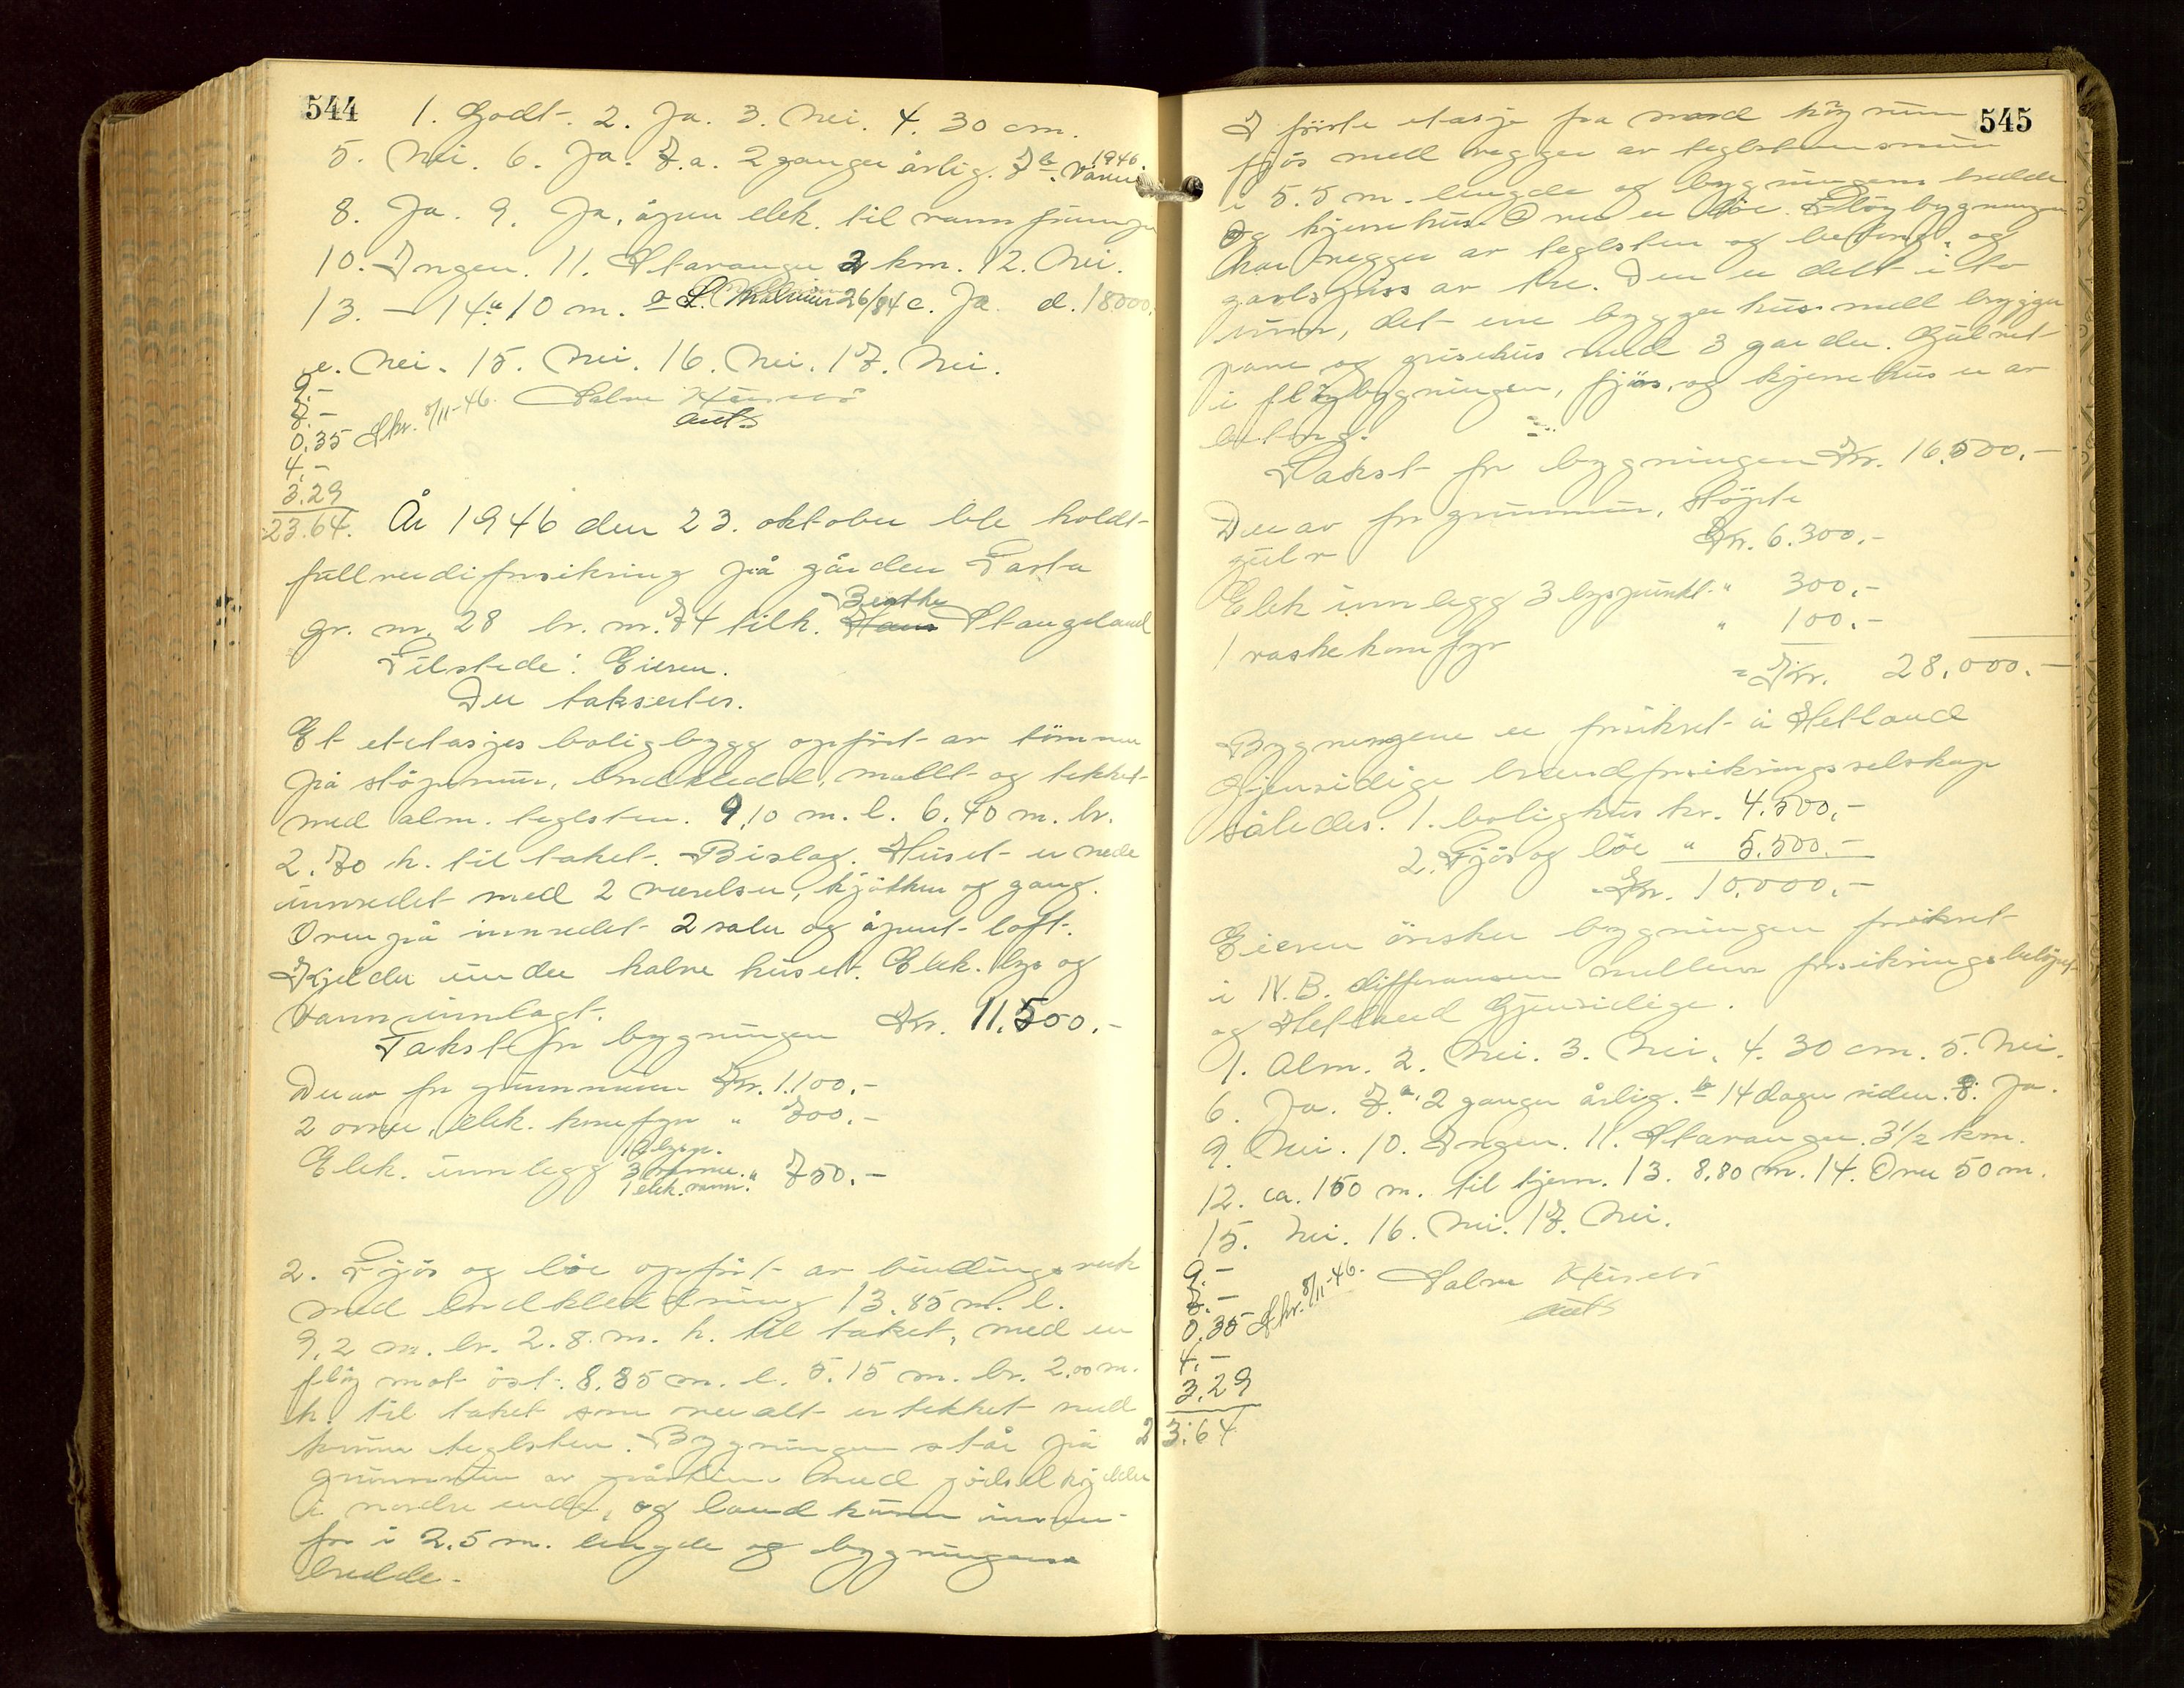 544
1. Godt. 2. Ja. 3. Nei. 4. 30 cm.
5. Nei. 6. Ja. 7.a. 2 ganger årlig. 7b. Våren 1946.
8. Ja. 9. Ja, åpen elek. til
10. Ingen. 11. Stavanger 2 km. 12. Nei.
13. – 14a. 10 m. b 26/84 c. Ja d. 18000.
e. Nei. 15. Nei. 16. Nei. 17. Nei.
9.-
7.-
0.35 Skr. 8/11-46. Salve
4.-
3.29
23.64. År 1946 den 23. oktober ble holdt
fullverdiforsikring på gården Tasta
gr. nr. 28 br. nr. 74 tilh. Hans Berthe Stangeland
Tilstede: Eieren.
Der takseres.
Et etetasjes boligbygg opført av tømmer
på støpemur, bordkledd, mallt og tekket
med alm. teglsten. 9.10 m. l. 6.40 m. br.
2.70 h. til taket. Bislag. Huset er nede
innredet med 2 værelser, kjøkken og gang.
Ovenpå innredet 2 saler og åpent loft.
Kjelder under halve huset. Elek. lys og
vann innlagt.
Takst for bygningen Kr. 11.500.-
Derav for grunnmuren Kr. 1.100.-
2 ovner, elek. komfyr " 700.-
Elek. innlegg 3 varme. 1 elek. vann. " 750.-
2. Fjøs og løe opført av bindingsverk
med bordkledning 13.85 m. l.
9,2 m. br. 2.8. m. h. til taket, med en
fløy mot øst. 8.85 m. l. 5.15 m. br. 2.00 m.
h. til taket som overalt er tekket med
krum teglsten. Bygningen står på
grunnmur av gråsten med gjødselkjelder
i nordre ende, og land kum innen-
for i 2.5 m. lengde og bygningens
bredde.
545
I første etasje fra nord høyrum
fjøs mell vegger av teglstensmur
i 5.5 m. lengde og bygningens bredde
og kjernehus. Over er løe. Fløybygningen
har vegger av teglsten og betong, og
gavlspiss av tre. Den er delt i to
rum, det ene bryggerhus mell brygge-
pane og grisehus med 3 garder. Gulvet
i fløybygningen, fjøs, og kjernehus er av
betong.
Takst for bygningen Kr. 16.500.-
Derav for grunnmur, støpte
gulv Kr. 6.300.-
Elek innlegg 3 lyspunkt. " 300.-
1 vaskekomfyr " 100.-
= Kr. 28.000.-
Bygningene er forsikret i Hetland
Gjensidige brandforsikringsselskap
således. 1. bolighus kr. 4.500.-
2. Fjøs og løe " 5.500.-
Kr. 10.000.-
Eieren ønsker bygningen forsikret
i N.B. differansen mellem forsikringsbeløpet
og Hetland Gjensidige.
1. Alm. 2. Nei. 3. Nei. 4. 30 cm. 5. Nei.
6. Ja. 7.a. 2 ganger årlig. b 14 dager siden. 8. Ja.
9. Nei. 10. Ingen. 11. Stavanger. 3½ km.
12. ca. 150 m. til tjern. 13. 8.80 m. 14. Over 50 m.
15. Nei. 16. Nei. 17. Nei.
9.-
7.-
0.35 Skr. 8/11-46. Salve
4.-
3.29
23.64